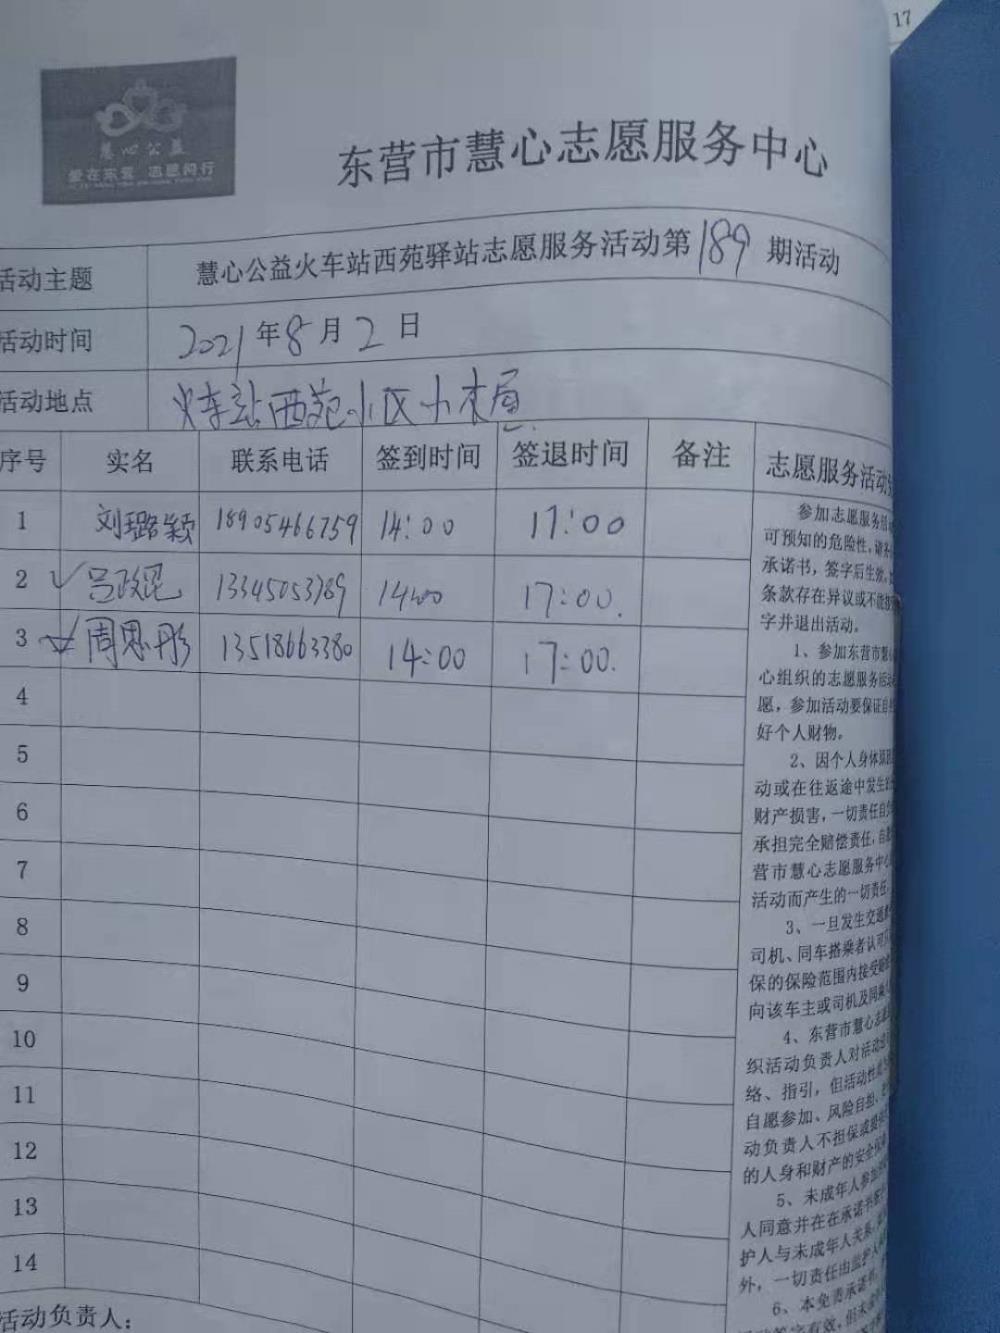 17
慧心公益
爱在东营 志愿同行
东营市慧心志愿服务中心
活动主题 慧心公益火车站西苑驿站志愿服务活动第189期活动
活动时间 2021年8月2日
活动地点 火车站西苑小区小木屋
序号 实名 联系电话 签到时间 签退时间 备注 志愿服务活动
1 刘璐颖 18905466759 14:00 17:00
2 吕政昆 13345053789 14:00 17:00.
3 周恩彤 13518663380 14:00 17:00.
4
5
6
7
8
9
10
11
12
13
14
参加志愿服务活
可预知的危险性,请务
承诺书,签字后生效,
条款存在异议或不能
字并退出活动。
1、参加东营市慧
心组织的志愿服务活动
愿,参加活动要保证自
好个人财物。
2、因个人身体原
动或在往返途中发生
财产损害,一切责任自
承担完全赔偿责任,自
营市慧心志愿服务中心
活动而产生的一切责任
3、一旦发生交通
司机、同车搭乘者认可
保的保险范围内接受赔
向该车主或司机及同乘
4、东营市慧心志愿
织活动负责人对活动进
络、指引,但活动性
自愿参加、风险自担、
动负责人不担保或提
的人身和财产的安全
5、未成年人参加
人同意并在在承诺书签
护人与未成年人关系,
外,一切责任由监护人
6、本免责承诺书,
签字有效,但未
活动负责人: